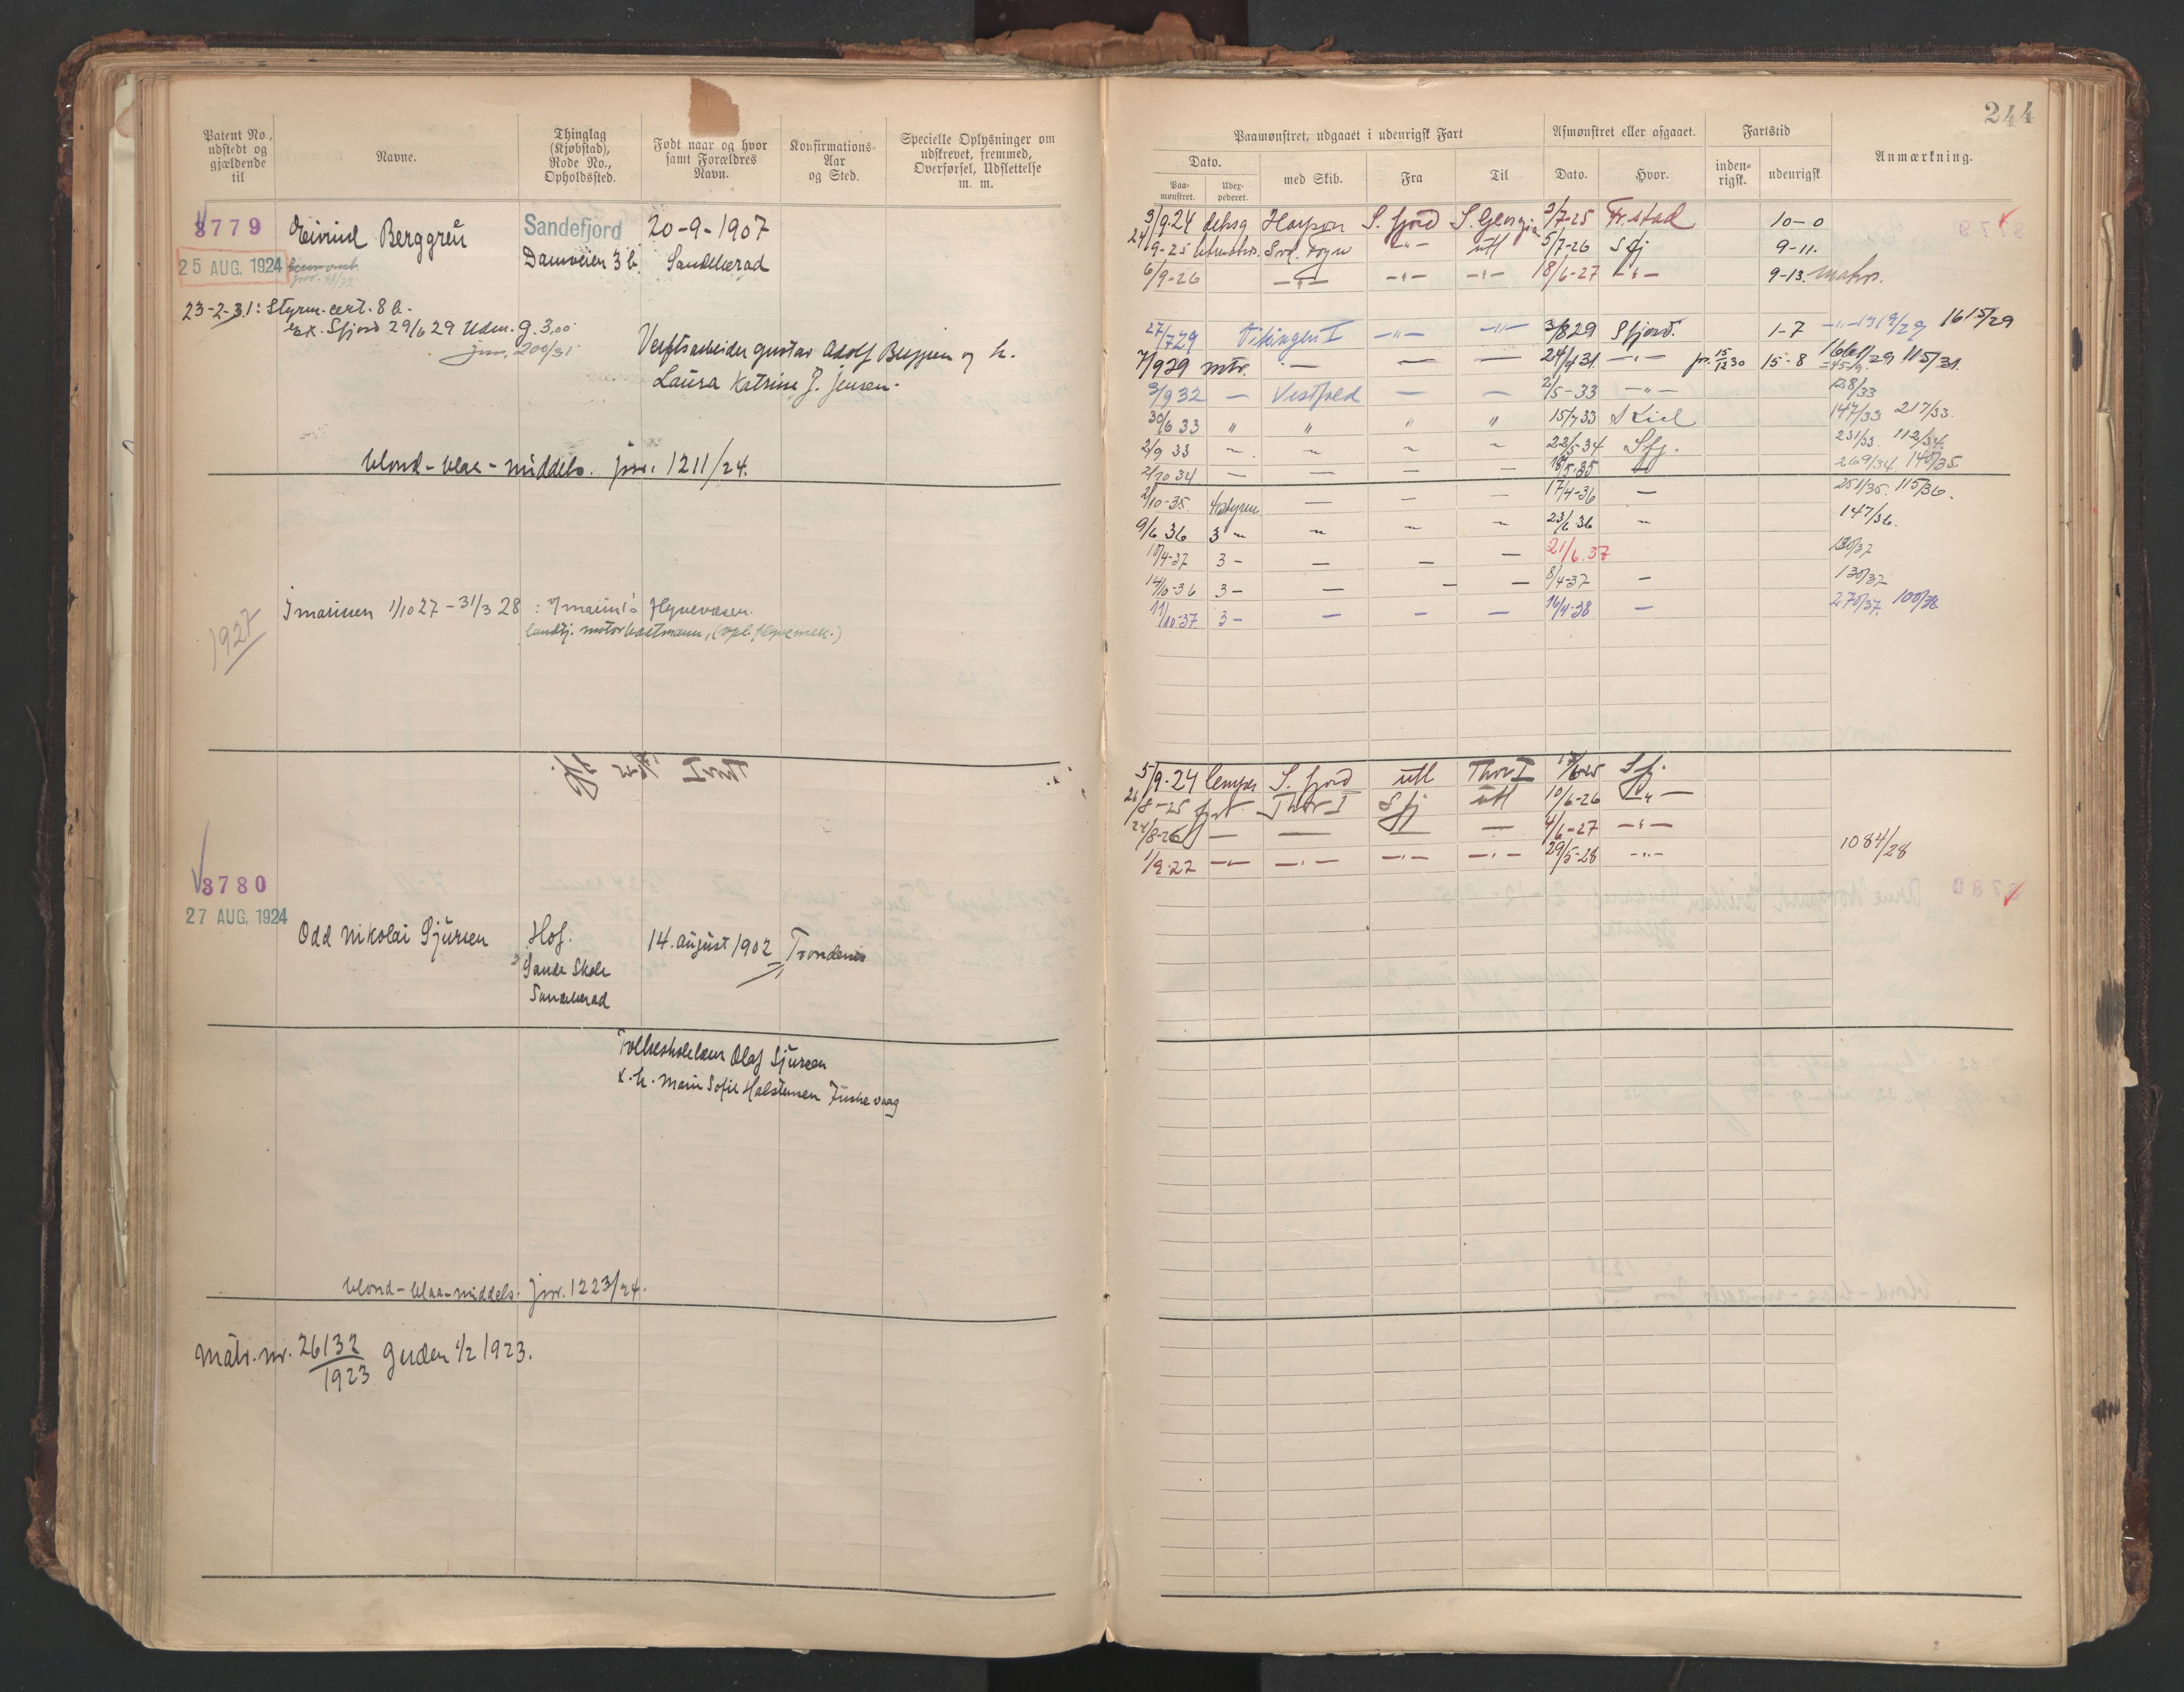 244
Patent No., udstedt og gjældende til
Navne.
Thinglag (Kjøbstad), Rode No., Opholdssted.
Født naar og hvor samt Forældres Navn.
Konfirmations-Aar og Sted.
Specielle Oplysninger om udskrevet, fremmed, Overførsel, Udslettelse m. m.
3779 Eivind Berggren Sandefjord 20-9-1907
25 AUG. 1924 Damveien 3b. Sandeherad
23-2-31: Styrm. cert. 8 b.
ex. Sfjord 29/6 29 Udm. g. 3,00
jnr. 200/31
Verftsarbeider Gustav Adolf Berggren og h.
Laura Katrine J. Jensen.
blond - blaa - middels. jnr. 1211/24.
1927
I marinen 1/10 27 - 31/3 28 : I marin's flyvevæsen.
Thor I
3780
27 AUG. 1924
Odd Nikolai Sjursen Hof. 14. august 1902 Trondenes
Sande Skole
Sandeherad
Folkeskolelærer Olaf Sjursen
& h. Marie Sofie Halstensen Fuskevaag
blond - blaa - middels. jnr. 1223/24.
Matr. nr. 26132/1923 1/2 1923.
Paamønstret, udgaaet i udenrigsk Fart
Afmønstret eller afgaaet.
Fartstid
Anmærkning.
Dato.
med Skib.
Fra
Til
Dato.
Hvor.
inden-rigsk.
udenrigsk
Paa-mønstret.
Udex-pederet.
3/9-24 deksg Harpon S. fjord S. Georgia 3/7-25 Fr.stad 10-0
24/9-25 Svd. Foyn -"- utl 5/7-26 Sfj 9-11.
6/9-26 -"- -"- -"- 18/6-27 -"- 9-13. matr.
27/7 29 Vikingen I -"- -"- 3/8 29 Sfjord. 1-7 1615/29
7/9 29 mtr. - — — 24/4 31. -"- 15/12 30 15-8 1661/29 115/31.
3/9 32 — Vestfold — — 2/5-33 -"- 128/33
30/6 33 " " " " 15/7 33 Kiel 147/33 217/33.
2/9 33 ~ ~ ~ ~ 22/5-34 Sfj. 231/33. 112/34.
2/10 34 — — — — 18/5-35 — 269/34. 140/35.
2/10-35. 4 styrm — — — 17/4-36 — 251/35. 115/36.
9/6 36 3 ~ ~ ~ ~ 23/6 36 ~ 147/36.
10/4-37 3 - — — — 21/6.37 130/37
14/10-36 3 - — — — 8/4-37 — 130/37
11/10-37. 3 - — — — 16/4-38 — 270/37. 100/38
5/9-24 S. fjord utl Thor I Sfj.
26/8-25 Thor I Sfj utl 10/6-26 -"-
24/8-26 — — — — 4/6-27 -"-
1/9-27 -"- -"- -"- -"- 29/5-28 -"- 1084/28